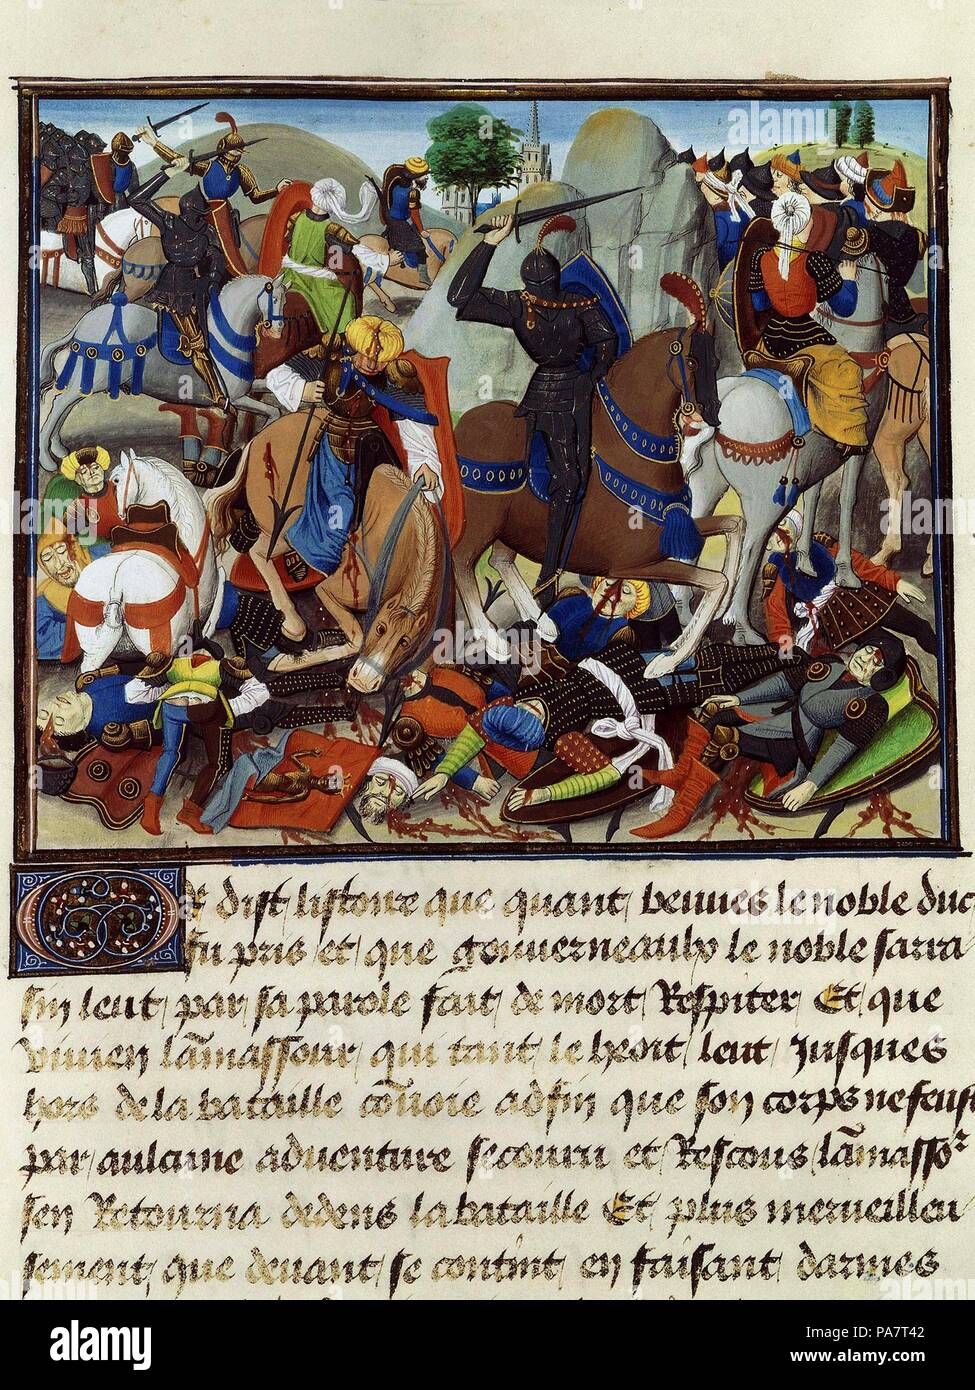 Or dist listoire que quant beuves le noble duc
fu pris et que gouverneaulx le noble sarra
sin leut par sa parole fait de mort Respiter Et que
vivien lamassour qui tant le heoit leut Jusques
hors de la bataille covoie adfin que son corps ne feust
par aulcune adventure secouru et Rescous lamassor
sen Retourna dedens la bataille Et plus merveilleu
sement que devant se contint en faisant darmes
alamy stock photo
PA7T42
www.alamy.com